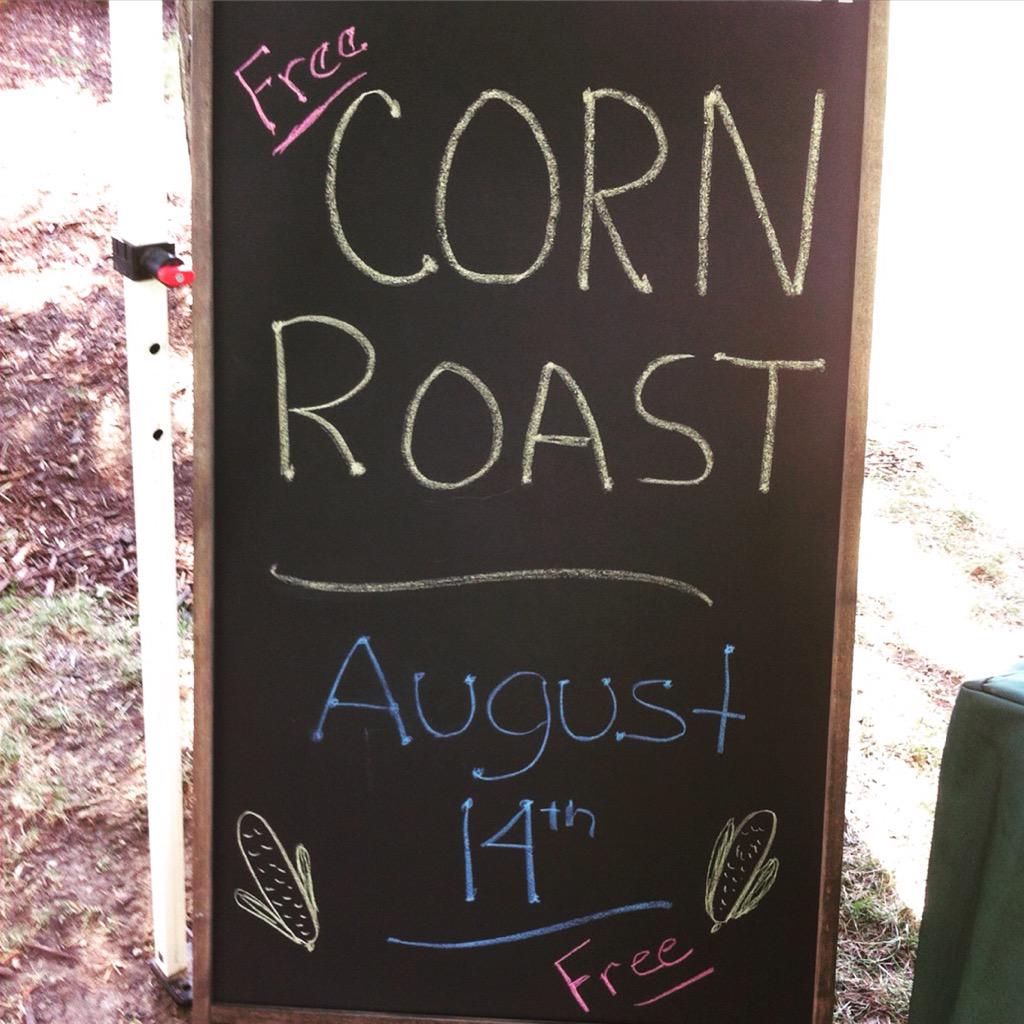 Free
CORN
ROAST
August
14th
Free